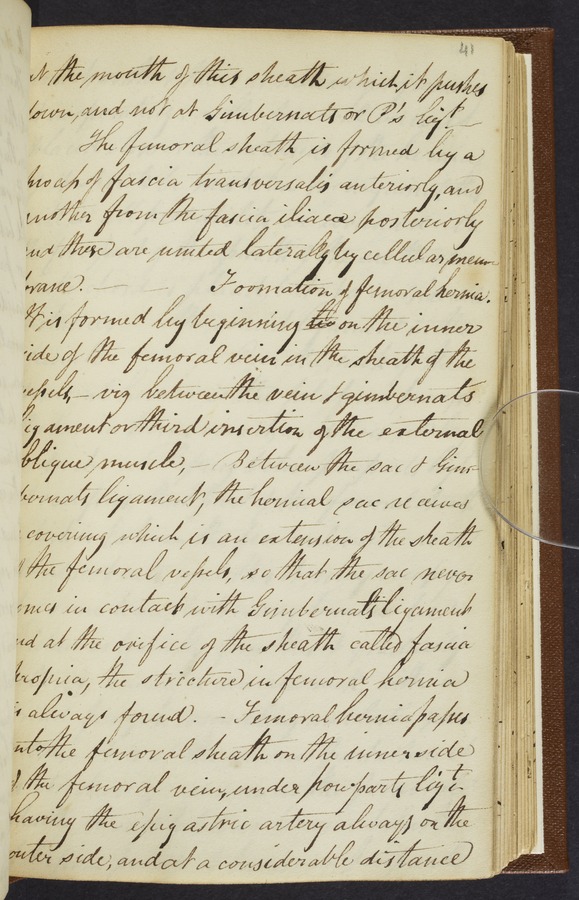 41
at the mouth of this sheath which it pushes
down, and not at Gimbernats or P's ligt_
The femoral sheath is formed by a
of fascia transversalis anteriorly, and
another from the fascia iliaca posteriorly
and these are united laterally by cellular mem
brane. — — Foomation of femoral hernia.
It is formed by beginning on the inner
side of the femoral vein in the sheath of the
vessels, – viz between the vein & gimbernats
ligament or third insertion of the external
oblique muscle, – Between the sac & Gim-
bernats ligament, the hernial sac receives
covering which is an extension of the sheath
of the femoral vessels, so that the sac never
comes in contact with Gimbernats ligament
and at the orifice of the sheath called fascia
propria, the stricture in femoral hernia
is always found. – Femoral hernia passes
into the femoral sheath on the inner side
of the femoral vein, under powparts ligt-
having the epigastric artery always on the
outer side, and at a considerable distance